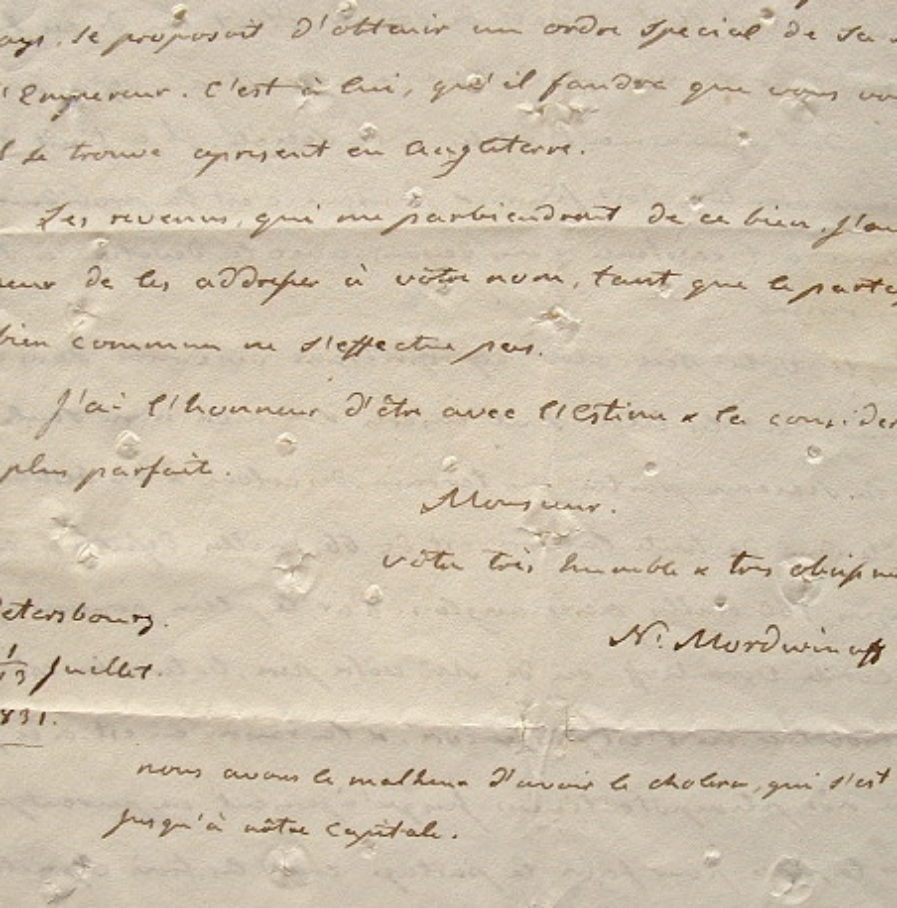 se proposoit d'obtenir un ordre special de sa
l'Empereur. C'est à lui, qu'il faudra que vous
se trouve apresent en Angleterre.
Les revenus, qui me parbiendront de ce bien, j'au
neur de les addresser à vôtre nom, tant que le parta
bien commun ne s'effectue pas.
J'ai l'honneur d'être avec l'estime & la consider
plus parfaite.
Monsieur.
vôtre très humble & tres obeissan
Petersbourg.
N. Mordwinoff
1/13 Juillet.
831.
nous avons le malheur d'avoir le cholera, qui s'est
jusqu'à nôtre capitale.